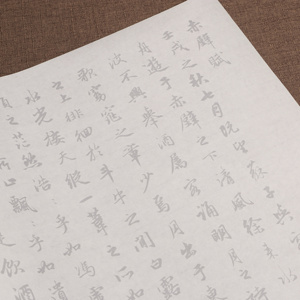 赤壁賦
壬戌之秋七月既望蘇子與
遊于赤壁之下清風徐來
波不興舉酒屬客誦明月之詩
歌窈窕之章少焉月出於東
之上徘徊於斗牛之間白露
水光接天縱一葦之所如
之茫然浩浩乎如馮虛
所止飄飄乎如遺
飲酒